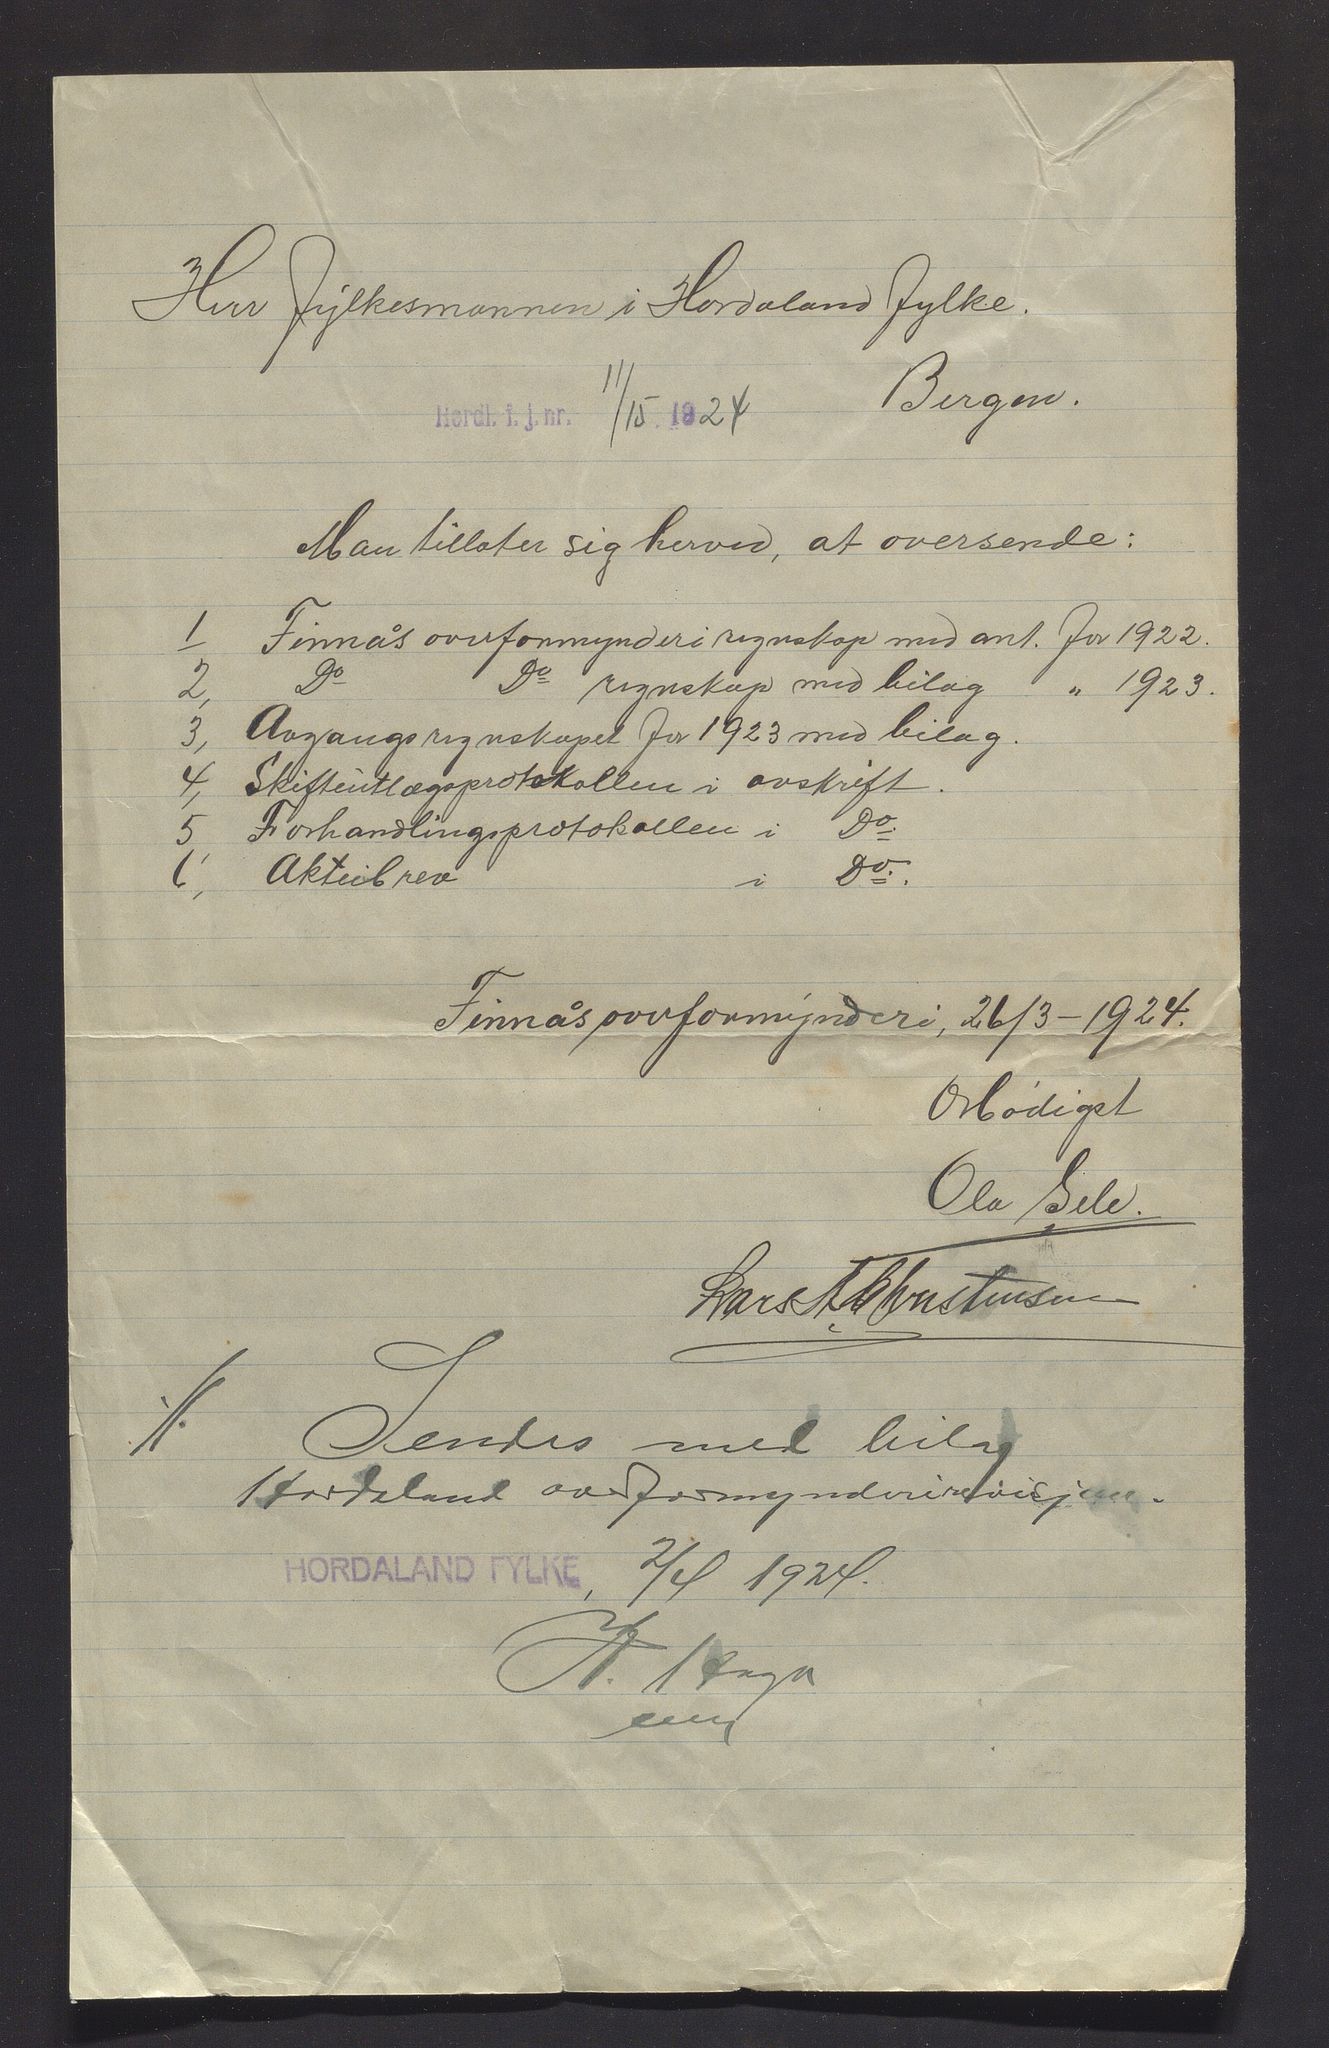 Herr Fylkesmannen i Hordaland fylke.
Bergen.
Hordl. f. j. nr. 11/15 1924
Man tillater sig herved, at oversende:
1 Finnås overformynderi regnskap med ant. for 1922.
2, Do Do regnskap med bilag " 1923.
3, Avgangsregnskapet for 1923 med bilag.
4, Skifteutlægsprotokollen i avskrift.
5, Forhandlingsprotokollen i Do.
6, Aktivbrev i Do.
Finnås overformynderi, 26/3-1924.
Ærbødigst
Ola Gele.
Lars A. Christensen
Sendes med bilag
Hordaland overformynderirevisjon.
HORDALAND FYLKE, 2/4 1924.
H. Haga